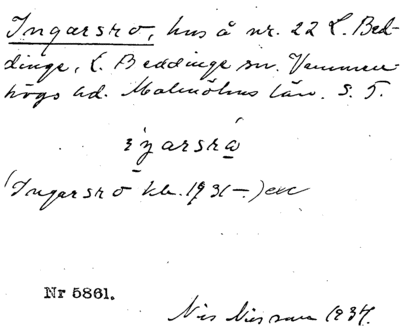 Ingarsro, hus å nr. 22 L. Bed-
dinge, L. Beddinge sn. Vemmen-
högs hd. Malmöhus län. S. 5.
(Ingarsro kb. 1931-.)
Nr 5861.
Nils Nilsson 1934.